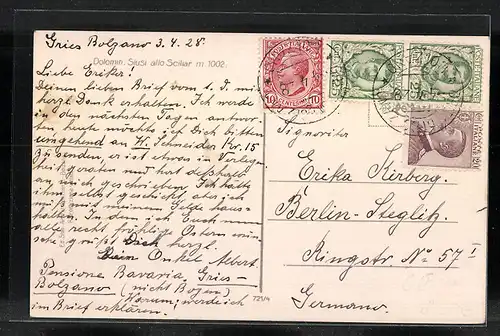 Gries Bolzano 3. 4. 28.
Dolomit. Siusi allo Sciliar m 1002.
Liebe Erika!
Deinen lieben Brief vom 1. d. mit
herzl. Dank erhalten. Ich werde
in den nächsten Tagen antwor-
ten, heute möchte ich Dich bitten
umgehend an W. Schneider Kr. 15
zu senden, er ist etwas in Verlegen-
heit geraten und hat deshalb
an mich geschrieben. Ich hätte
ihm selbst geschickt, aber ich
muß mit meinem Gelde haus-
halten. In dem ich Euch
alle recht fröhliche Ostern wün-
sche grüßt Dich herzl.
Dein Onkel Albert
Pensione Bavaria, Gries-
Bolzano (nicht Bozen)
Warum, werde ich
im Brief erklären.
721/4
CENTESIMI 10
Signorita
Erika Kirberg.
Berlin-Steglitz
Ringstr No 57 I
Germano.